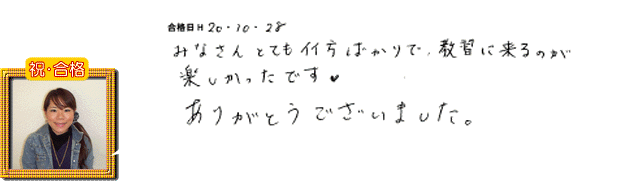 合格日H 20・10・28
祝・合格
みなさんとても仏方ばかりで、教習に来るのが
楽しかったです♥
ありがとうございました。